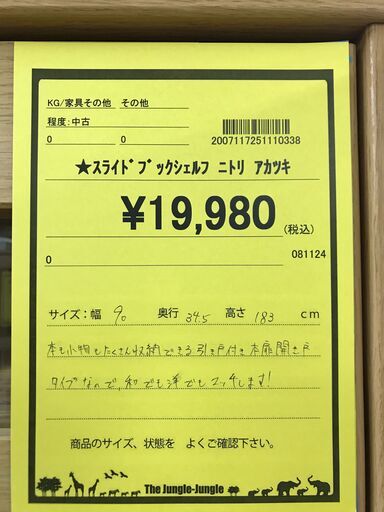 KG/家具その他 その他
程度:中古
0 0
2007117251110338
★スライドブックシェルフ ニトリ アカツキ
¥19,980(税込)
0 081124
サイズ:幅 90 奥行 34.5 高さ 183 cm
本も小物もたくさん収納できる引き戸付き本扉開き戸
タイプなので、和でも洋でもマッチします!
商品のサイズ、状態を よくご確認下さい。
The Jungle-Jungle